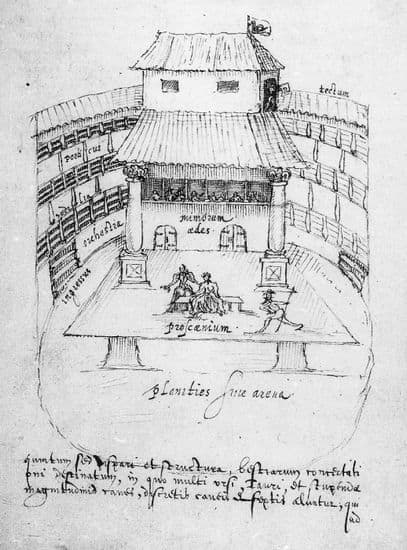 tectum
porticus
orchestra
mimorum
ædes.
ingressus
proscænium
planities siue arena
et structura, bestiarum concertati
oni destinatum, in quo multi ursi, tauri, et stupendæ
magnitudinis canes, discretis caueis et septis aluntur, qui
ad